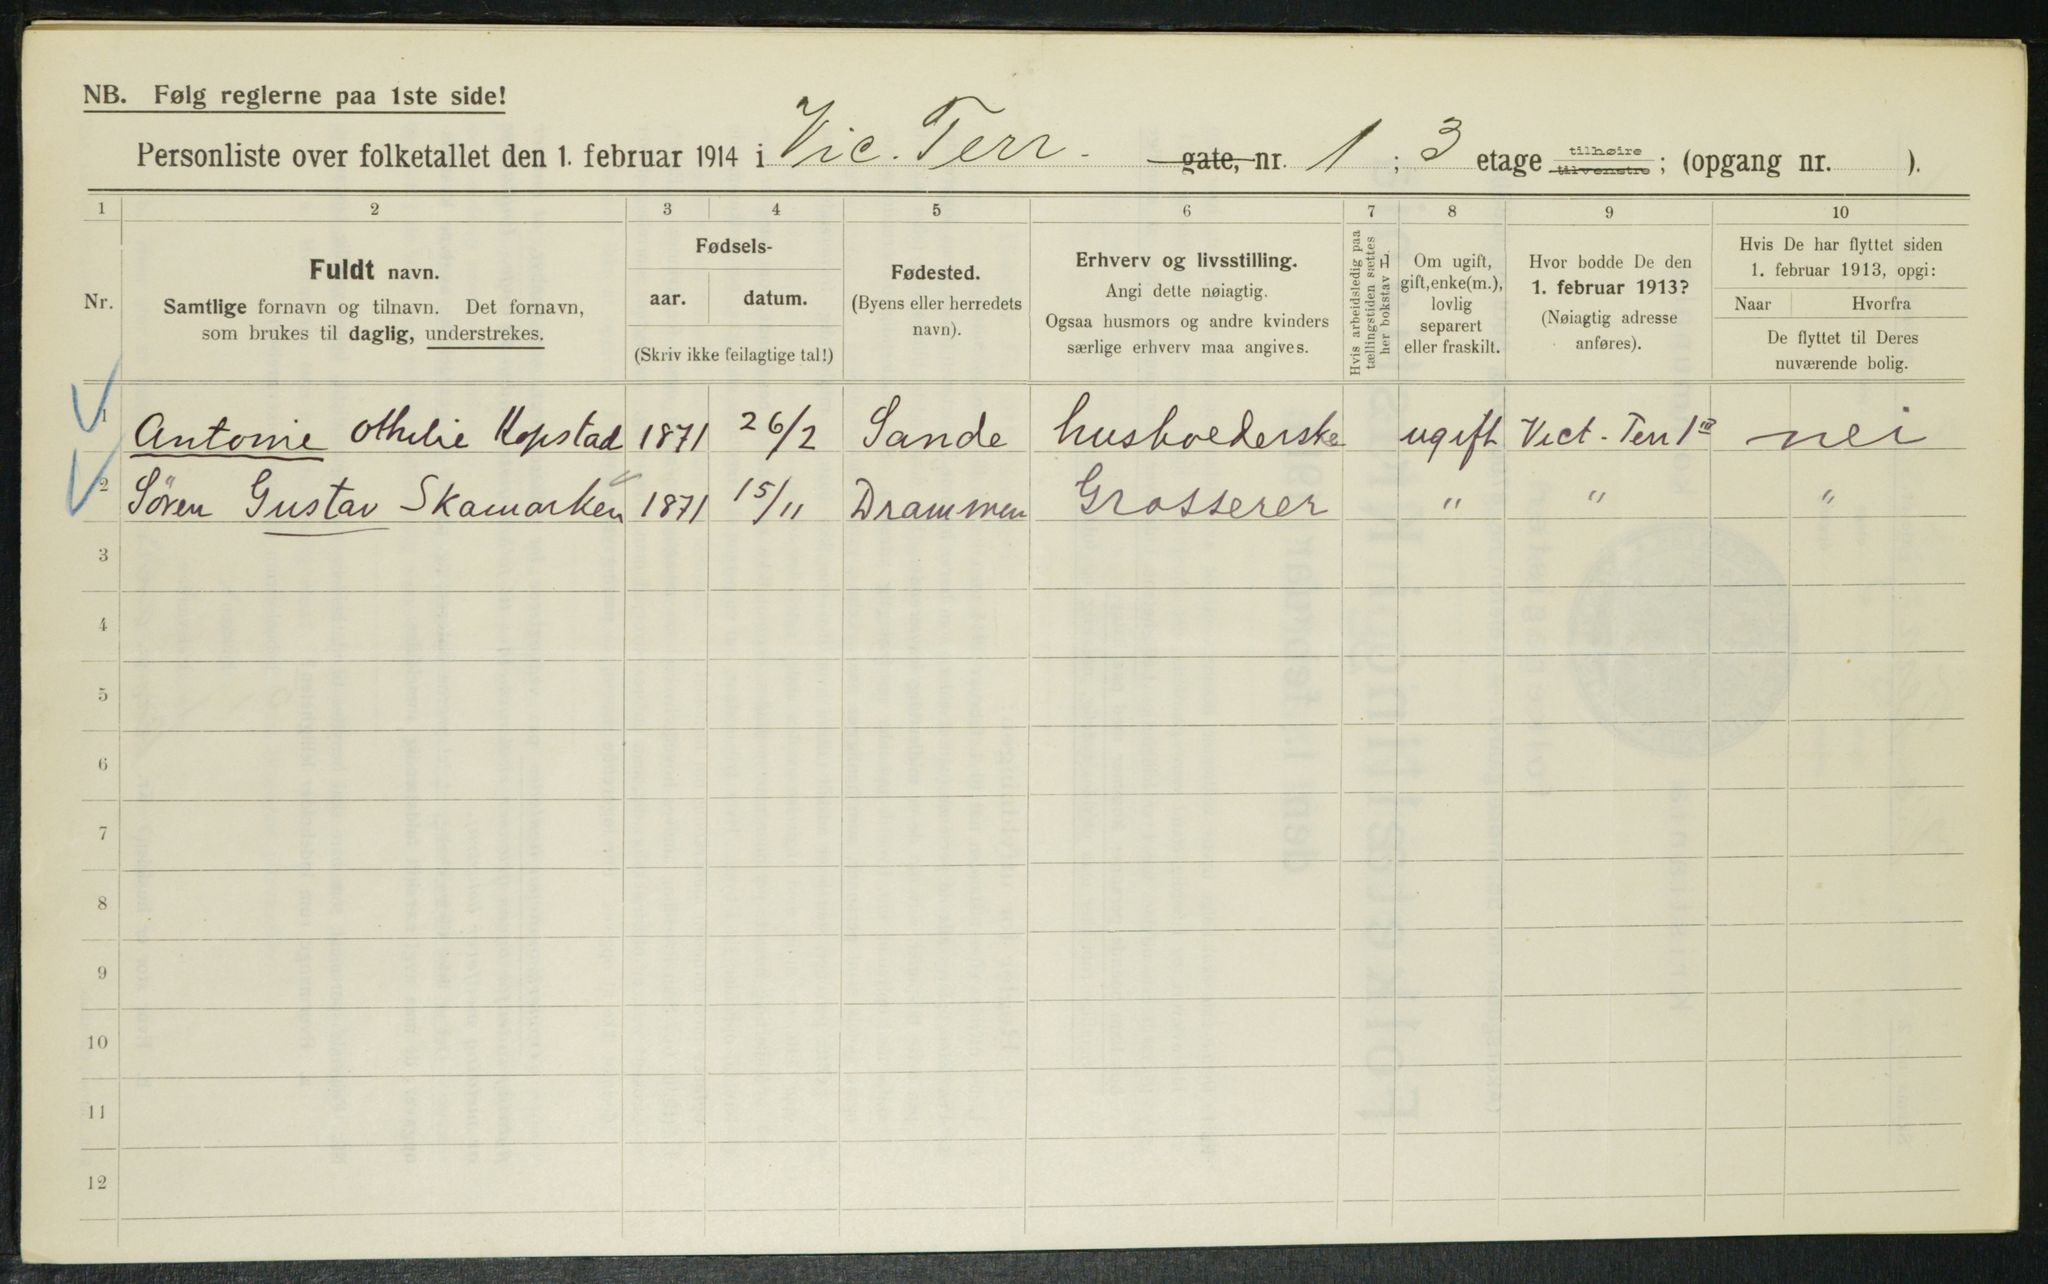 NB. Følg reglerne paa 1ste side!
Personliste over folketallet den 1. februar 1914 i Vic. Terr. gate, nr. 1 ; 3 etage tilhøire tilvenstre ; (opgang nr. ).
1 2 3 4 5 6 7 8 9 10
Nr.
Fuldt navn.
Samtlige fornavn og tilnavn. Det fornavn,
som brukes til daglig, understrekes.
Fødsels-
aar. datum.
(Skriv ikke feilagtige tal!)
Fødested.
(Byens eller herredets
navn).
Erhverv og livsstilling.
Angi dette nøiagtig.
Ogsaa husmors og andre kvinders
særlige erhverv maa angives.
Hvis arbeidsledig paa
tællingstiden sættes
her bokstav H
Om ugift,
gift, enke(m.),
lovlig
separert
eller fraskilt.
Hvor bodde De den
1. februar 1913?
(Nøiagtig adresse
anføres).
Hvis De har flyttet siden
1. februar 1913, opgi:
Naar Hvorfra
De flyttet til Deres
nuværende bolig.
1 Antonie Othilie Hopstad 1871 26/2 Sande husholderske ugift Vict. Terr 1 III nei
2 Søren Gustav Skamarken 1871 15/11 Drammen Grosserer " " "
3
4
5
6
7
8
9
10
11
12